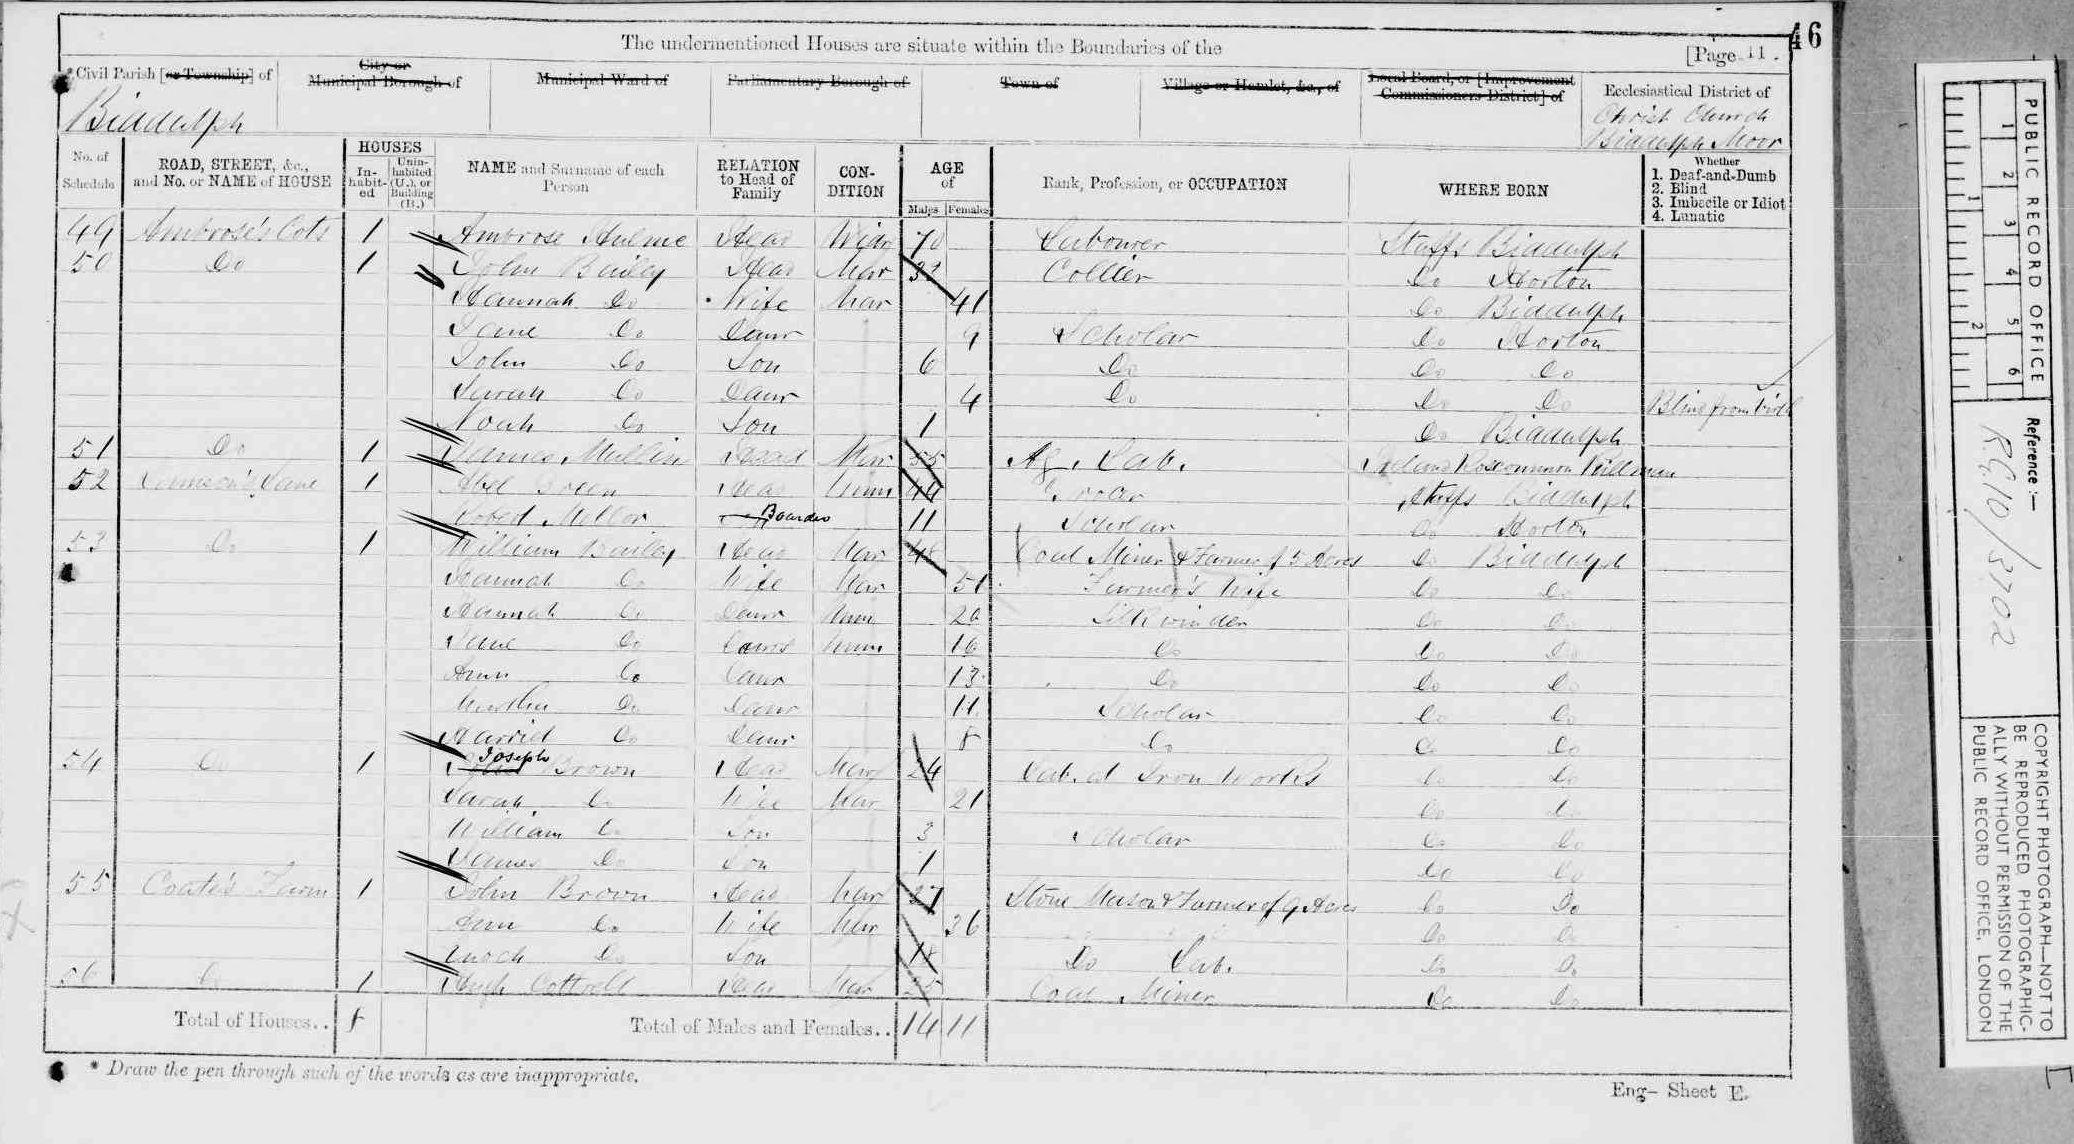 46
The undermentioned Houses are situate within the Boundaries of the
[Page 11.
* Civil Parish [or Township] of
City or Municipal Borough of
Municipal Ward of
Parliamentary Borough of
Town of
Village or Hamlet, &c., of
Local Board, or [Improvement Commissioners District] of
Ecclesiastical District of
Biddulph
Christ Church
Biddulph Moor
No. of Schedule
ROAD, STREET, &c., and No. or NAME of HOUSE
HOUSES
In-habit-ed
Unin-habited (U.), or Building (B.)
NAME and Surname of each Person
RELATION to Head of Family
CON-DITION
AGE of
Males
Females
Rank, Profession, or OCCUPATION
WHERE BORN
Whether
1. Deaf-and-Dumb
2. Blind
3. Imbecile or Idiot
4. Lunatic
49 Ambrose's Cots 1 Ambrose Hulme Head Widr 70 Labourer Staffs Biddulph
50 Do 1 John Bailey Head Mar Collier Do Horton
Hannah Do Wife Mar 41 Do Biddulph
Jane Do Daur 9 Scholar Do Horton
John Do Son 6 Do Do Do
Sarah Do Daur 4 Do Do Do Blind from birth
Noah Do Son 1 Do Biddulph
51 Do 1 James Mullin Head Mar 55 Ag. Lab. Ireland Roscommon
52 Lane 1 Abel Green Head Unm 44 Grocer Staffs Biddulph
Mellor Boarder 11 Scholar Do Horton
53 Do 1 William Bailey Head Mar 48 Coal Miner & Farmer of 5 Acres Do Biddulph
Hannah Do Wife Mar 51 Farmer's Wife Do Do
Hannah Do Daur Unm 20 Silk winder Do Do
Jane Do Daur Unm 16 Do Do Do
Ann Do Daur 13 Do Do Do
Martha Do Daur 11 Scholar Do Do
Harriet Do Daur 8 Do Do Do
54 Do 1 Joseph Brown Head Mar 24 Lab. at Iron Works Do Do
Sarah Do Wife Mar 21 Do Do
William Do Son 3 Scholar Do Do
James Do Son 1 Do Do
55 Coate's Farm 1 John Brown Head Mar 37 Stone Mason & Farmer of 9 Acres Do Do
Ann Do Wife Mar 36 Do Do
Enoch Do Son 18 Do Lab. Do Do
56 Do 1 Hugh Cottrell Head Mar 25 Coal Miner Do Do
Total of Houses.. 8
Total of Males and Females.. 14 11
* Draw the pen through such of the words as are inappropriate.
Eng- Sheet E.
PUBLIC RECORD OFFICE
1 2 3 4 5 6
1 2
Reference :-
R.G.10/3702
COPYRIGHT PHOTOGRAPH—NOT TO
BE REPRODUCED PHOTOGRAPHIC-
ALLY WITHOUT PERMISSION OF THE
PUBLIC RECORD OFFICE, LONDON